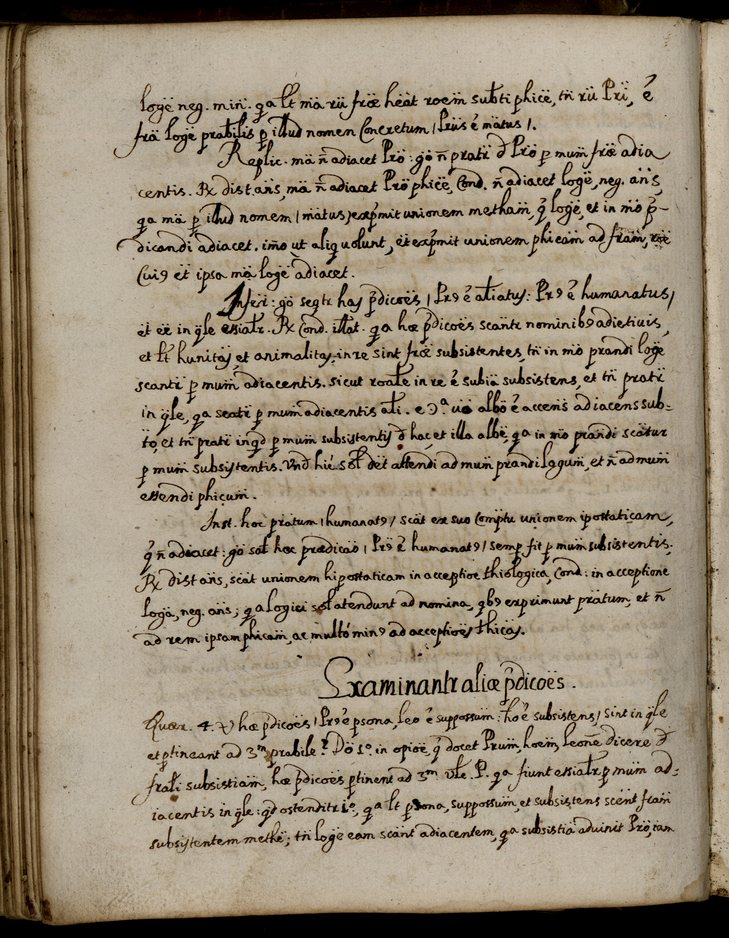 logë neg. min. qa lt mä rü fræ heät roem subti phicë, tn rü Pri, é
frä logë prabilis p illud nomen Concretum | Prüs é mätus |.
Replic. mä n̄ adiacet Prö: gö n̄ pratr d Prö p mum fræ adia
centis. Rx dist. ans, mä n̄ adiacet Prö phicë, Cond. n̄ adiacet logë, neg. ans,
qa mä p illud nomem | mätus | exprmit unionem metham, q logë, et in mö p-
dicandi adiacet. imo ut aliq uolunt, et exprmit unionem phicam ad fram,
Cui9 et ipsa mä logë adiacet.
Aferi: gö seqtr has pdicoës | Pr9 é aliatus: Pr9 é humanatus |
et eë in qle essialr. Rx Cond. illat. qa hæ pdicoës scantr nominib9 adietiuis,
et lt hunitas et animalitas in re sint fræ subsistentes, tn in mö prandi logë
scantr p mum adiacentis. sicut roale in re é subia subsistens, et tn pratr
in qle, qa scatr p mum adiacentis ali. e Ɔa uö albö é accens adiacens sub=
to, et tn pratr in qd p mum subsistentis d hac et illa albë, qa in mö prandi scatur
p mum subsistentis. Vnd hic sol det attendi ad mum prandi logum, et n̄ ad mum
essendi phicum.
Inst. hoc pratum | humanat9 | scät ex suo Comptu unionem ipostaticam,
q n̄ adiacet: gö sol hæc prædicaö | Pr9 é humanat9 | semp fit p mum subsistentis.
Rx dist ans, scät unionem hipostaticam in acceptioë thiologica, Cond: in acceptione
loga, neg. ans; qa logici sol atendunt ad nomina, qb9 exprimunt pratum, et n̄
ad rem ipsam phicam, ac multo min9 ad acceptioës thicas.
Examinantr aliæ pdicoës.
Quær. 4. V hæ pdicoës | Pr9 é psona, leo é supposum: ho é subsistens | sint in qle
et ptineant ad 3m prabile? Dö 1o. in opioë, q docet Prum, hoem, leone dicere d
frali subsistiam, hæ pdicoës ptinent ad 3m vle. P. qa fiunt essialr p mum ad=
iacentis in qle: qd ostenditr 1o, qa lt psona, supposum, et subsistens scent fram
subsistentem methë; tn logë eam scant adiacentem, qa subsistia aduinit Prö, iam